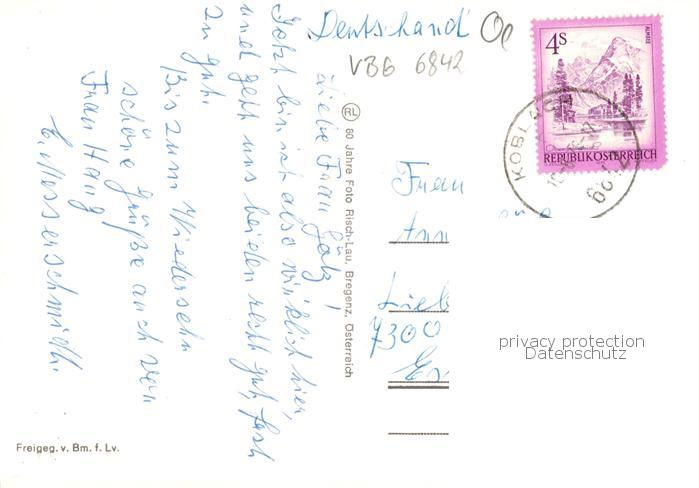 Deutschland
VBG 6842
4S
ALMSEE
REPUBLIK ÖSTERREICH
KOBLACH
Liebe Frau Götz!
Jetzt bin ich also wirklich hier,
und geht uns beiden recht gut, fast
zu gut.
Bis zum Wiedersehn
schöne Grüße auch von
Frau Haug
E. Messerschmidt.
RL 80 Jahre Foto Risch-Lau, Bregenz, Österreich
Frau
Ann
Lieb
7300
Es
privacy protection
Datenschutz
Freigeg. v. Bm. f. Lv.